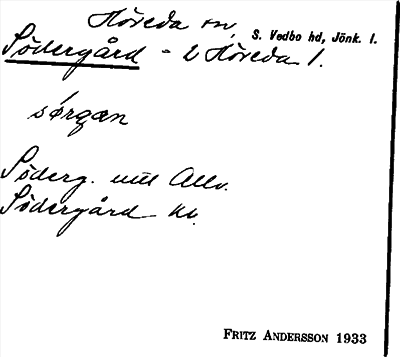 Höreda sn, S. Vedbo hd, Jönk. l.
Södergård - 2 Höreda 1.
sǿrgæn
Söderg. utt Allv.
Södergård kt.
FRITZ ANDERSSON 1933